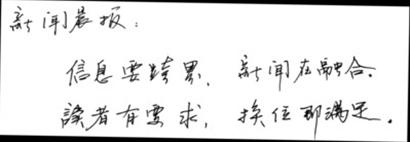 新闻晨报：
信息要跨界，新闻在融合。
读者有要求，换位即满足。